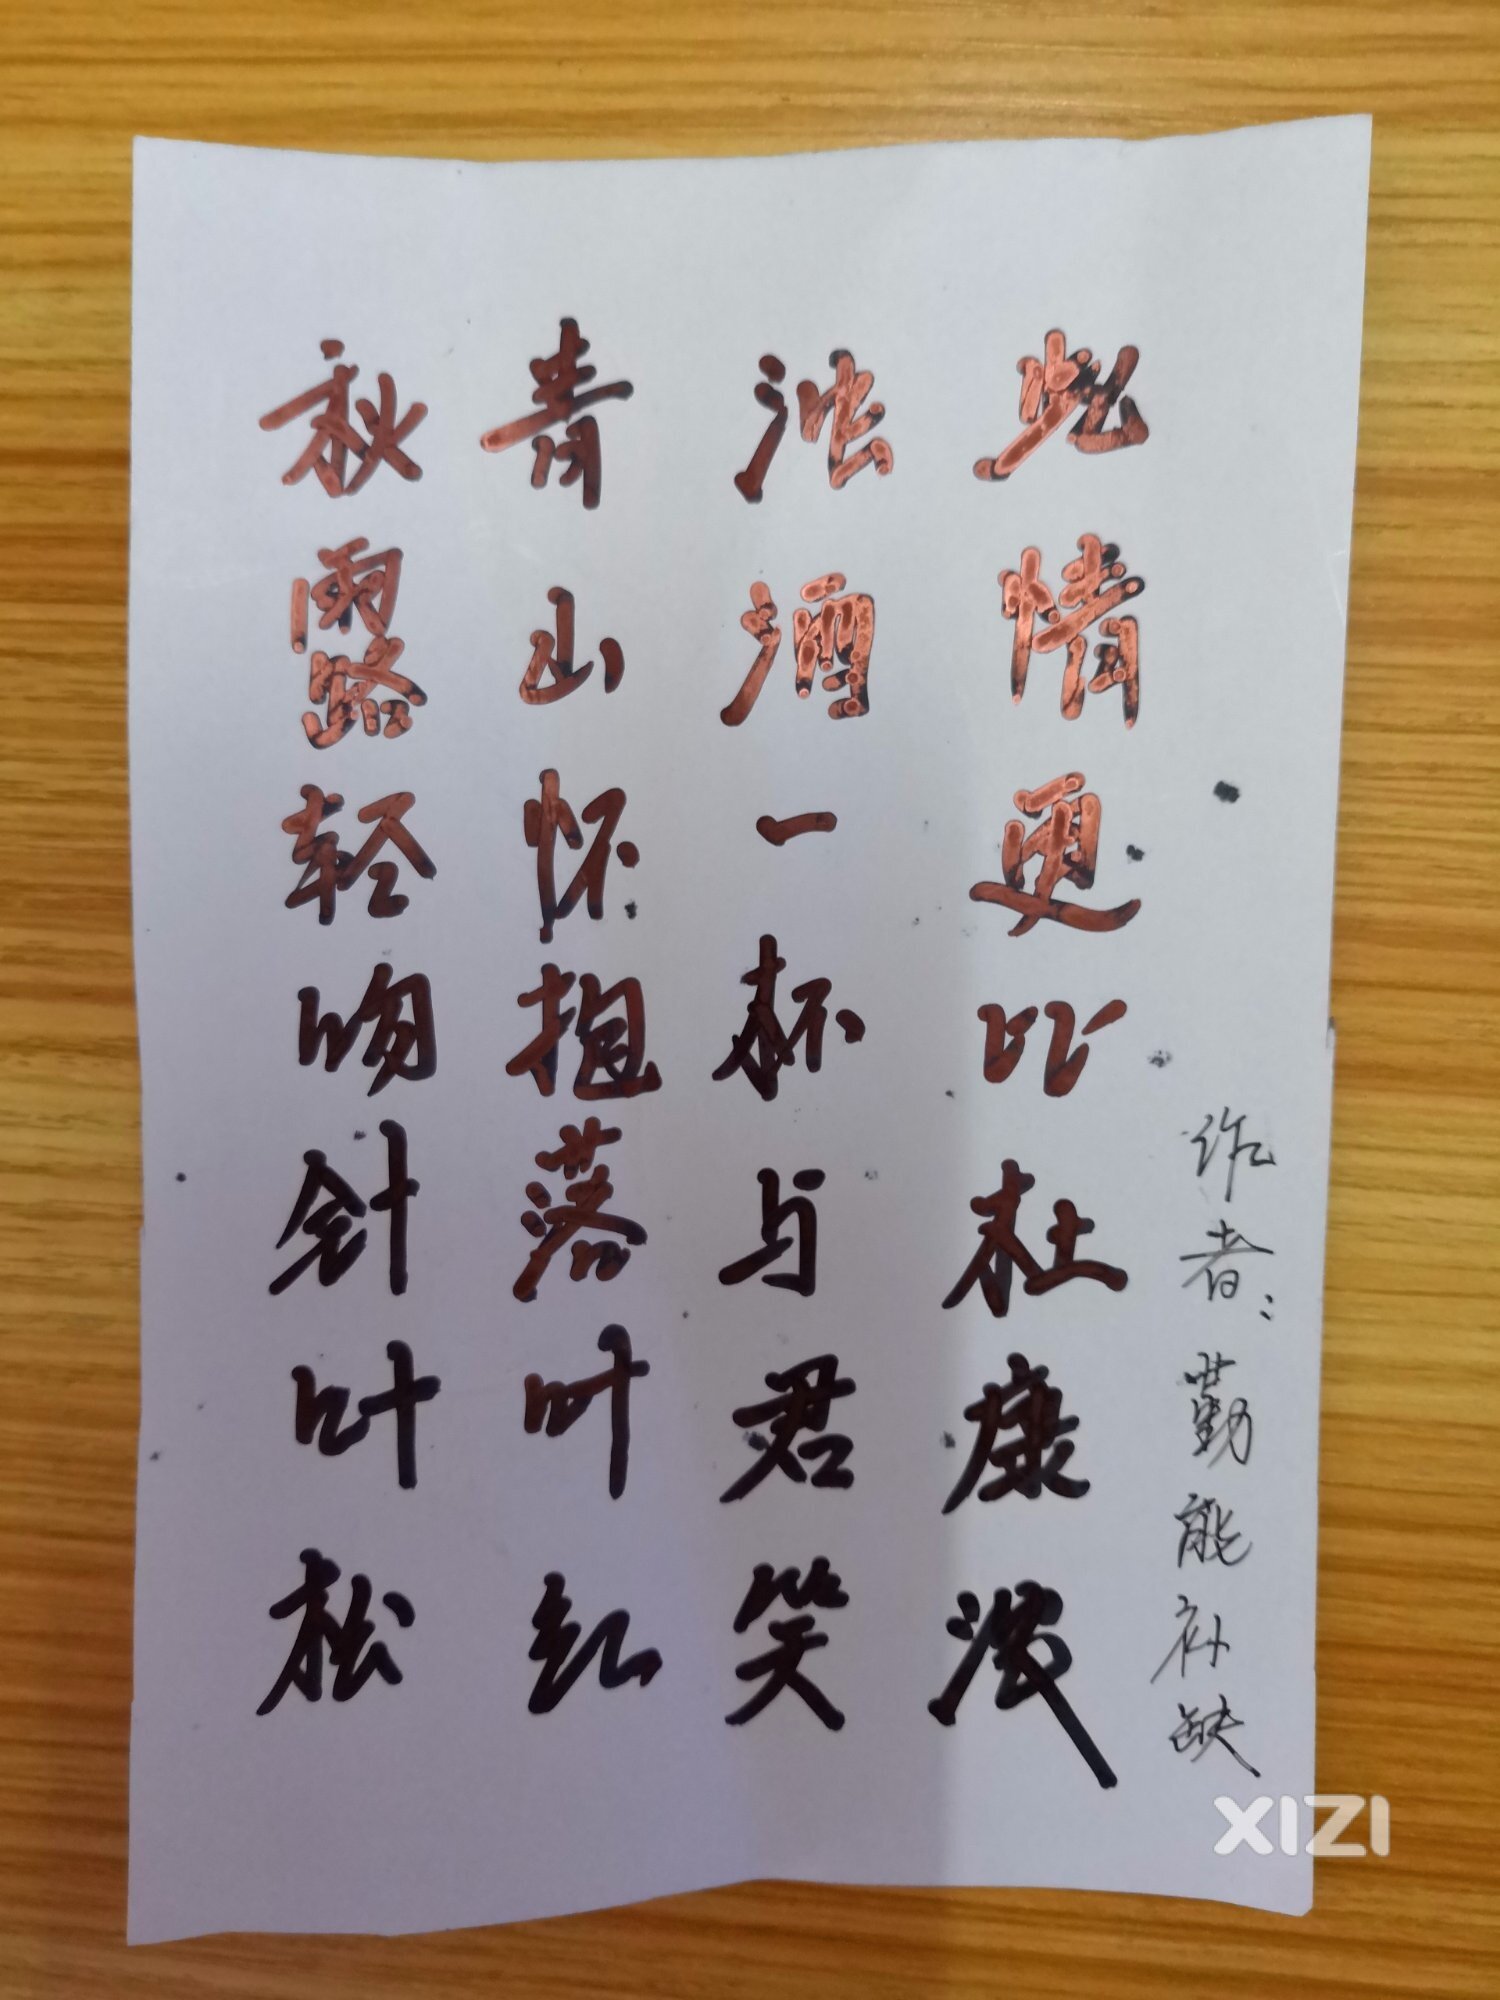 秋露轻吻针叶松
青山怀抱落叶红
浊酒一杯与君笑
此情更比杜康浓
作者：勤能补缺
XIZI